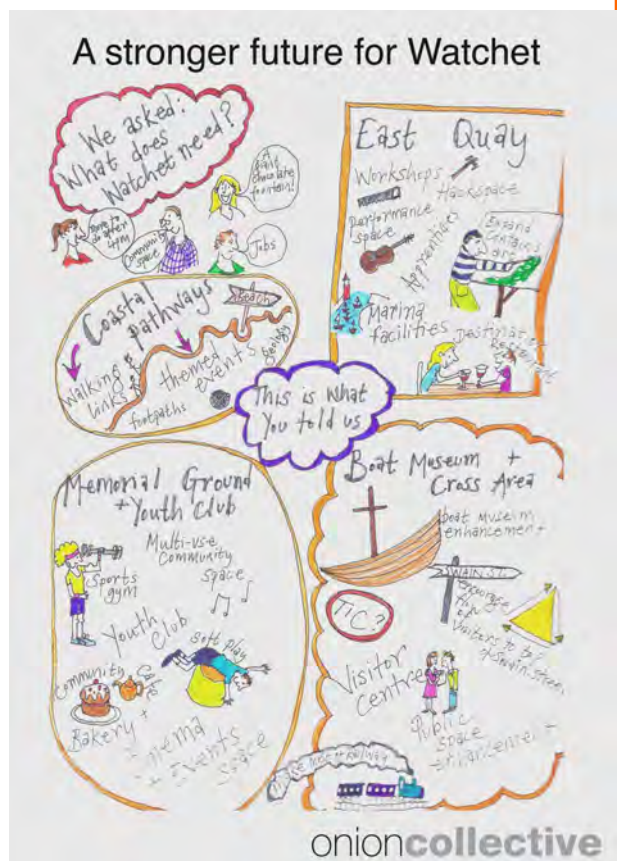 A stronger future for Watchet
We asked:
What does
Watchet need?
A
giant
chocolate
fountain!
More to
do after
4pm
Community
space
Jobs
East Quay
Workshops
Hackspace
Performance
space
Apprentices
Expand
Contains
art
Marina
facilities
Destination
Restaurant
Coastal
pathways
Beach
Walking
links
themed
events
geology
footpaths
This is what
you told us
Memorial Ground
+ Youth Club
Multi-use
Community
space
Sports
gym
Youth
Club
Soft play
Community
Cafe
Bakery +
Cinema
+ Events
Space
Boat Museum +
Cross Area
boat museum
enhancement
SWAIN ST.
encourage
flow
of
visitors to top
of Swain Street
TIC?
Visitor
Centre
Public
space
enhancement
railway
onioncollective